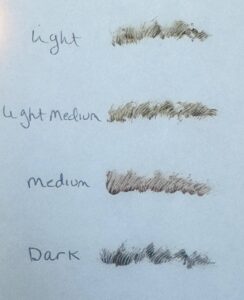 Light
Light Medium
Medium
Dark